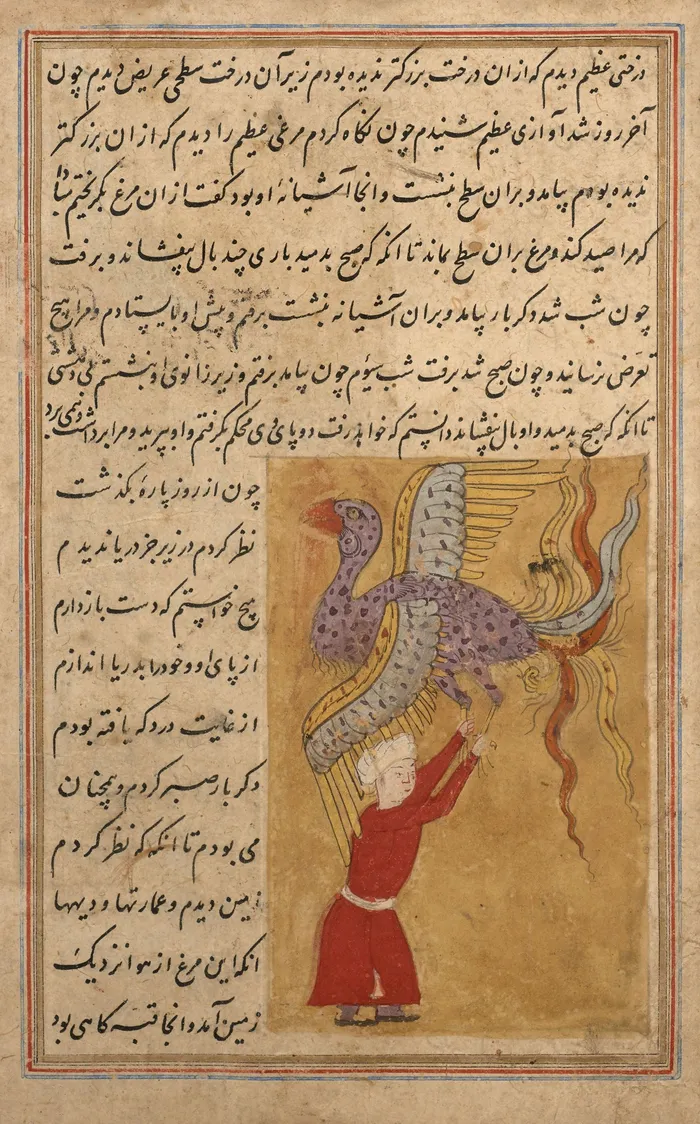 درختی عظیم دیدم که از ان درخت بزرکتر ندیده بودم زیر آن درخت سطحی عریض دیدم چون
آخر روز شد آوازی عظیم شنیدم چون نکاه کردم مرغی عظیم را دیدم که از ان بزرکتر
ندیده بودم بیامد و بران سطح بنشست و انجا آشیانهٔ او بود کفت از ان مرغ بکریختم مبادا
که مرا صید کند و مرغ بران سطح بماند تا انکه که صبح بدمید باری چند بال بیفشاند و برفت
چون شب شد دکر بار بیامد و بران آشیانه بنشست برفتم و پیش او بایستادم و مرا هیچ
تعرض نرسانید و چون صبح شد برفت شب سیوم چون بیامد برفتم و زیر زانوی او بنشستم
تا انکه که صبح بدمید و او بال بیفشاند دانستم که خواهد رفت دو پای وی محکم بکرفتم و او بپرید و مرا برداشت
چون از روز پارهٔ بکذشت
نظر کردم در زیر جز دریا ندیدم
هیچ خواستم که دست بازدارم
از پای او و خود را بدریا اندازم
از غایت درد که یافته بودم
دکر بار صبر کردم و همچنان
می بودم تا انکه که نظر کردم
زمین دیدم و عمارتها و دیهها
انکه این مرغ از هوا نزدیک
زمین آمد و انجا قبه کاهی بود